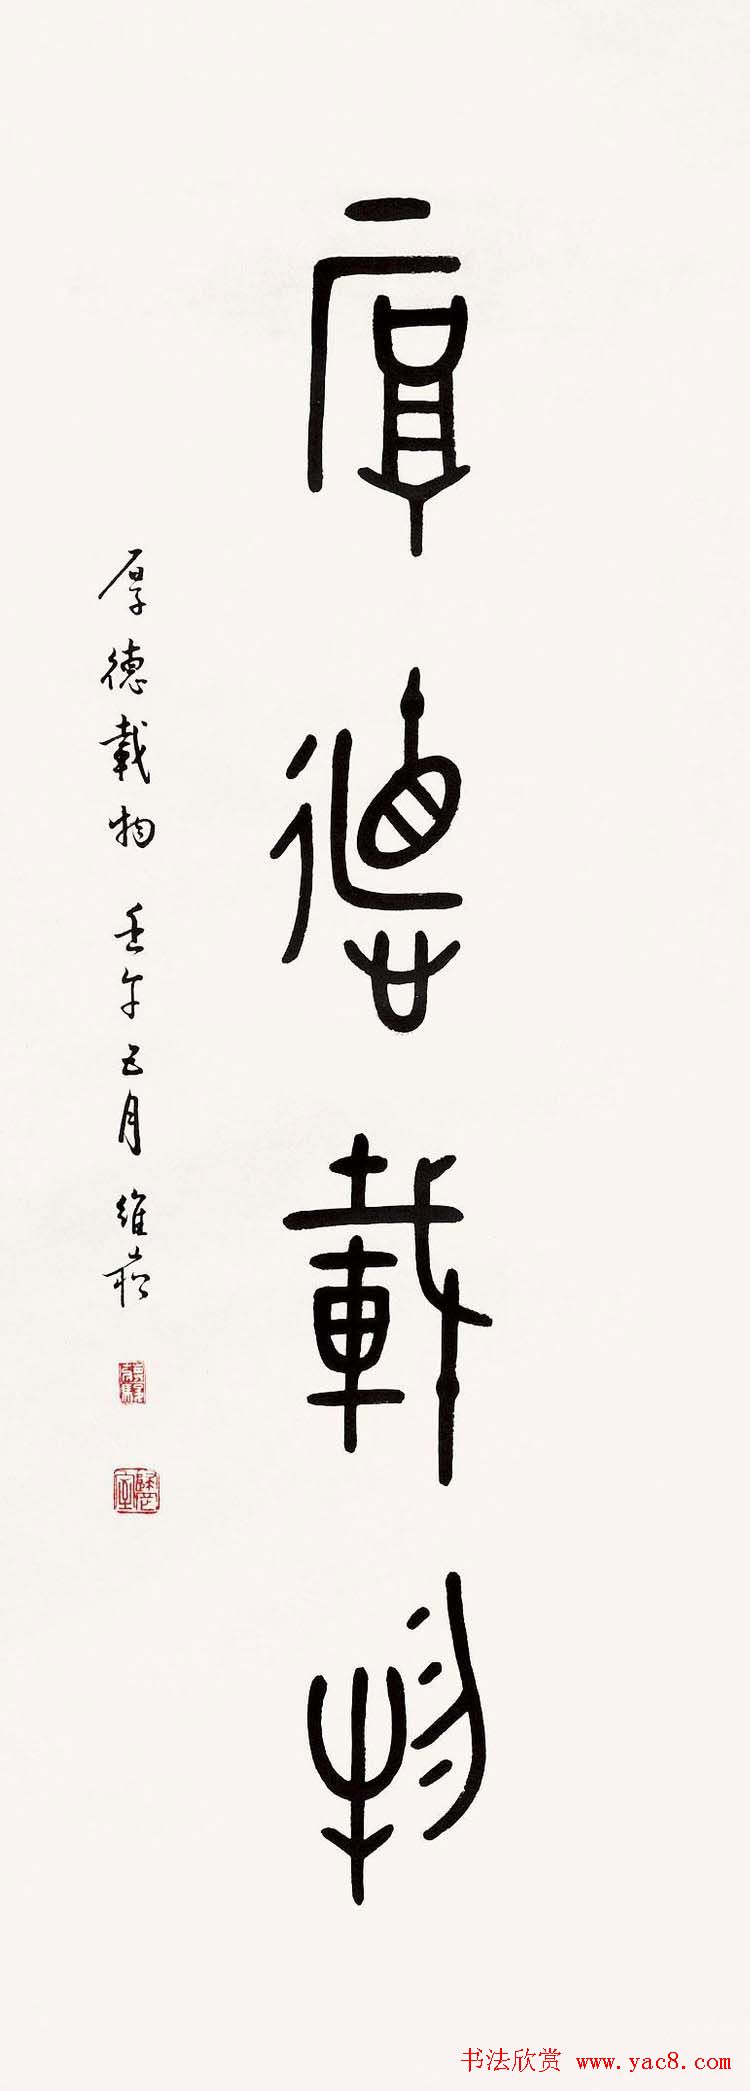 厚德載物
厚德載物 壬午五月 維崧
书法欣赏 www.yac8.com